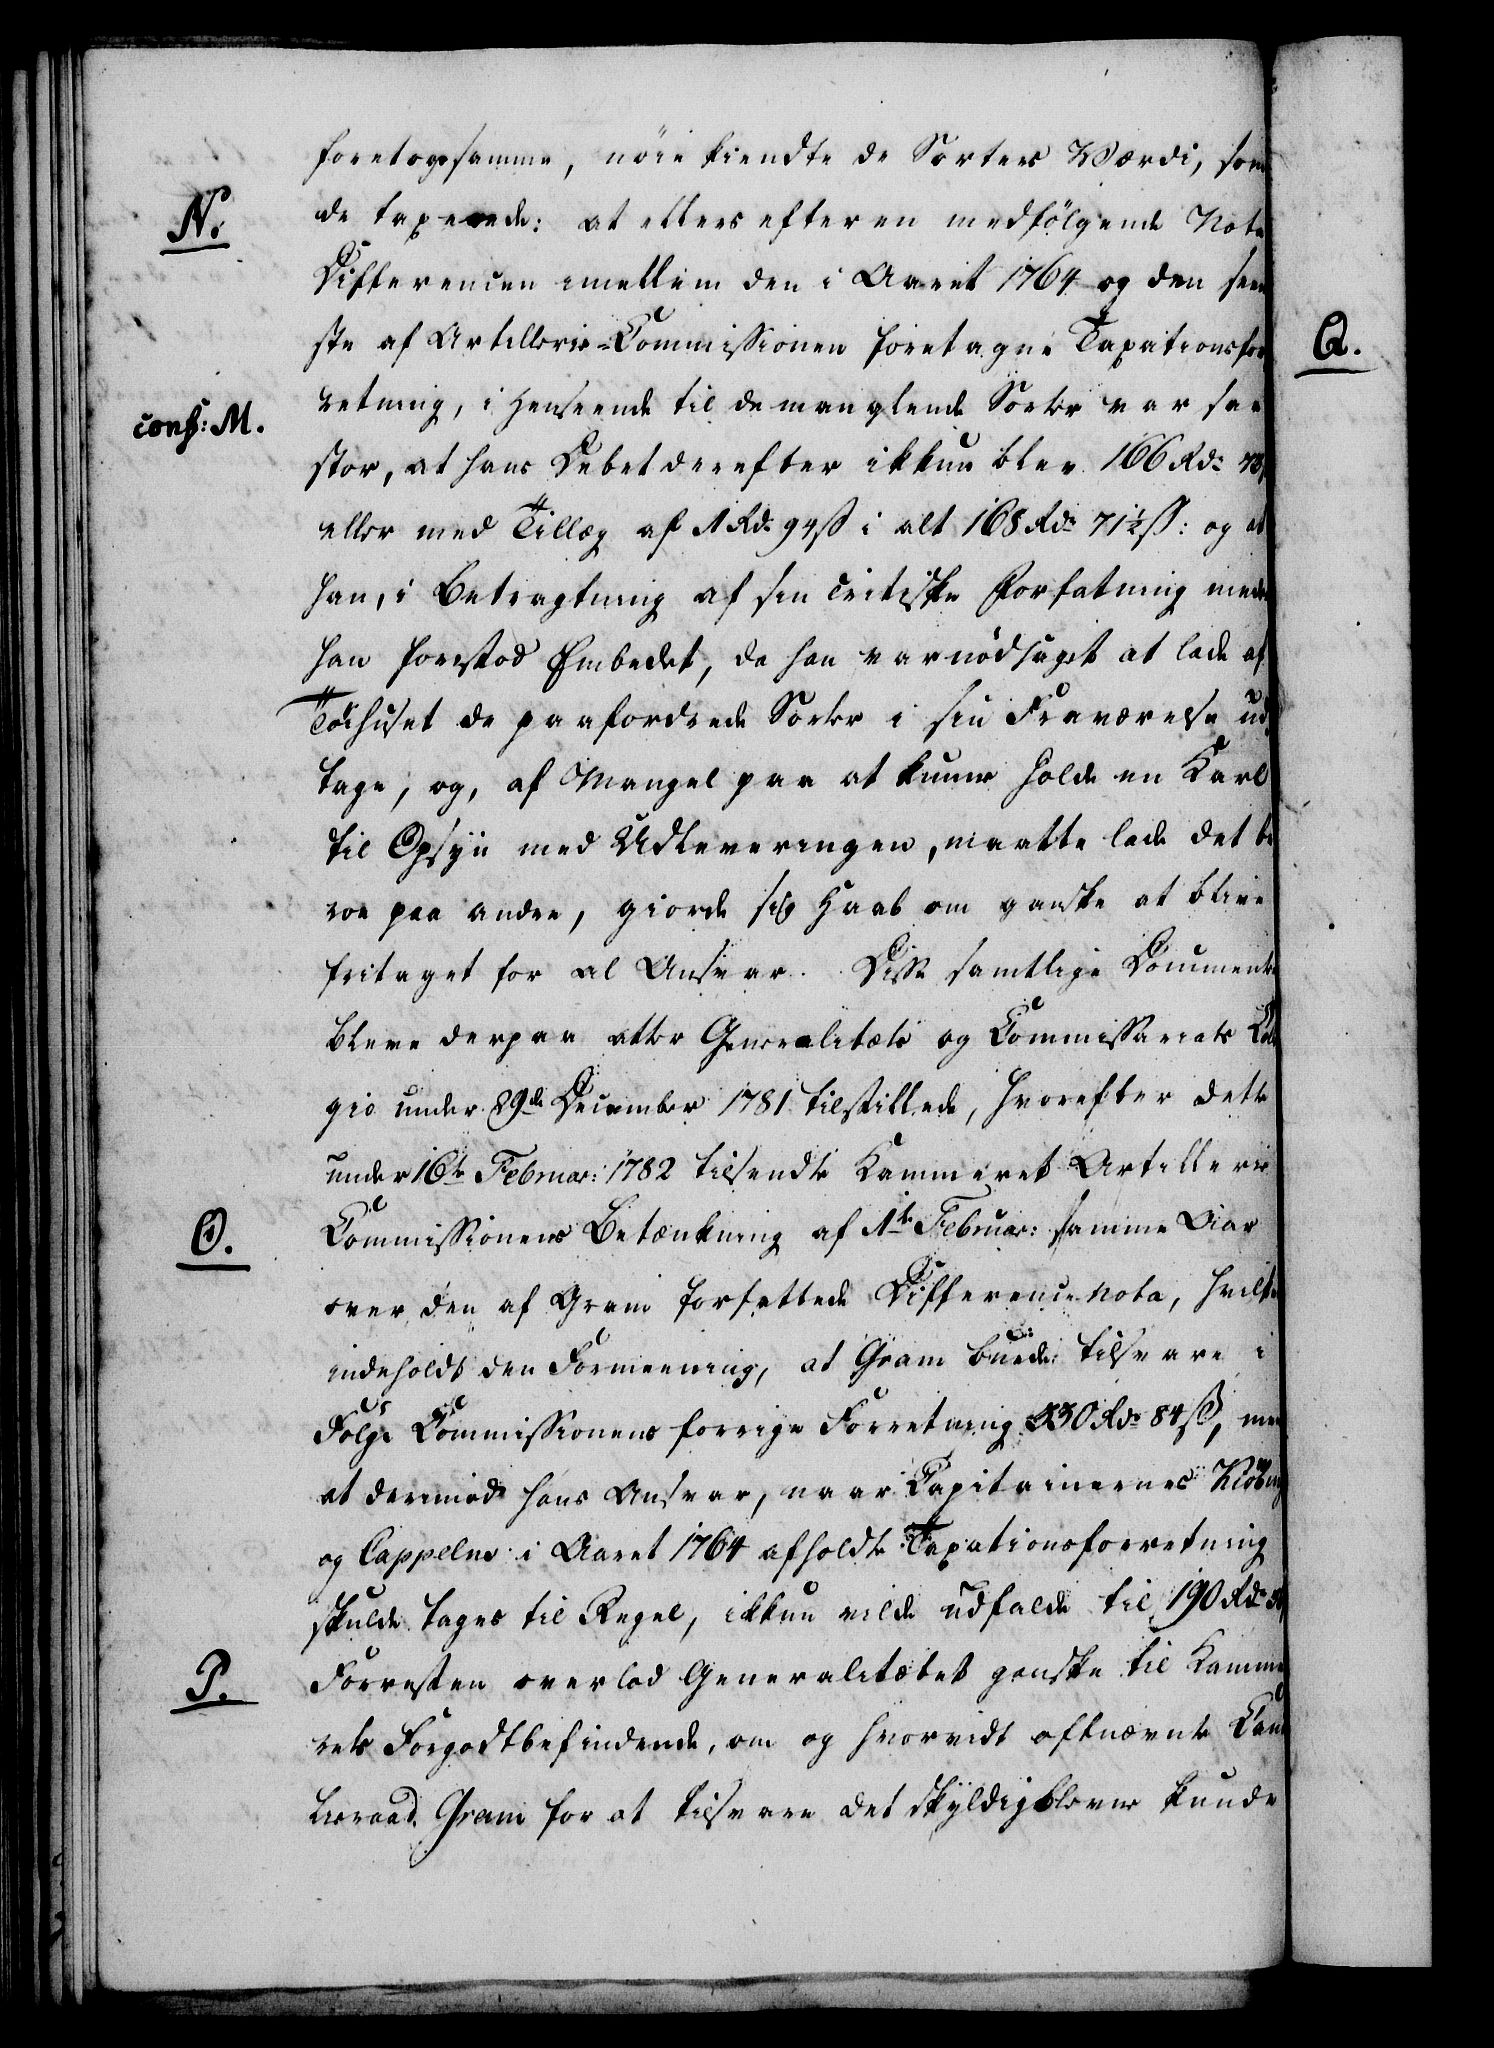 foretog samme, nöie kiendte de Sorters Værdi, som
N.
de taxerede: at ellers efter en medfölgende Nota
Differencen imellem den i Aaret 1764 og den sene
ste af Artillerie-Commissionen foretagne Taxationsfor
Q.
retning, i Henseende til de manglende Sorter var saa
conf: M.
stor, at hans Debet derefter ikkun blev 166 Rd:
eller med Tillæg af 1 Rd. 94ß i alt 168 Rd: 71½ß: og at
han, i Betragtning af sin critiske Forfatning medens
han forestod Embedet, da han var nödsaget at lade af
Töihuset de paafordrede Sorter i sin Fraværelse ud
tage, og, af Mangel paa at kunne holde en Karl
til Opsyn med Udleveringen, maatte lade det be
roe paa andre, giorde sig Haab om ganske at blive
fritaget for al Ansvar. Disse samtlige Documenter
bleve derpaa atter Generalitets og Commissariats Colle
gio under 29de December 1781 tilstillede, hvorefter dette
under 16te Februar: 1782 tilsendte Kammeret Artillerie
O.
Commissionens Betænkning af 1te Februar: samme Aar
over den af Gram forfattede Difference Nota, hvilken
indeholdt den Formeening, at Gram burde tilsvare i
Fölge Commissionens forrige Forretning 330 Rd: 84ß, men
at derimod hans Ansvar, naar Capitainernes
og Cappelns i Aaret 1764 afholdte Taxationsforretning
skulde tages til Regel, ikkun vilde udfalde til 190 Rd:
P.
Forresten overlod Generalitetet ganske til Kamme
rets Forgodtbefindende, om og hvorvidt oftnævnte Cane
lieraad Gram for at tilsvare det skyldigblevne kunde